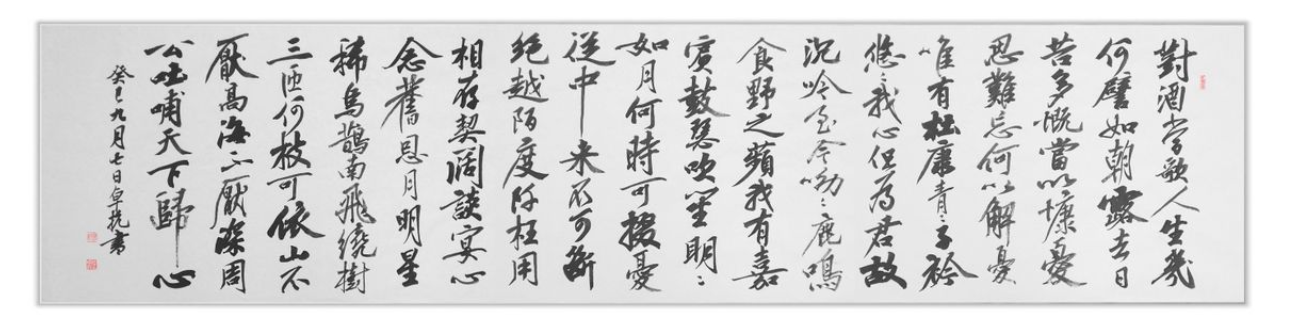 對酒當歌人生幾
何譬如朝露去日
苦多慨當以慷憂
思難忘何以解憂
唯有杜康青〻子衿
悠〻我心但為君故
沉吟至今呦〻鹿鳴
食野之蘋我有嘉
賓鼓瑟吹笙明〻
如月何時可掇憂
從中來不可斷
絕越陌度阡枉用
相存契闊談宴心
念舊恩月明星
稀烏鵲南飛繞樹
三匝何枝可依山不
厭高海不厭深周
公吐哺天下歸心
癸巳九月七日卓書